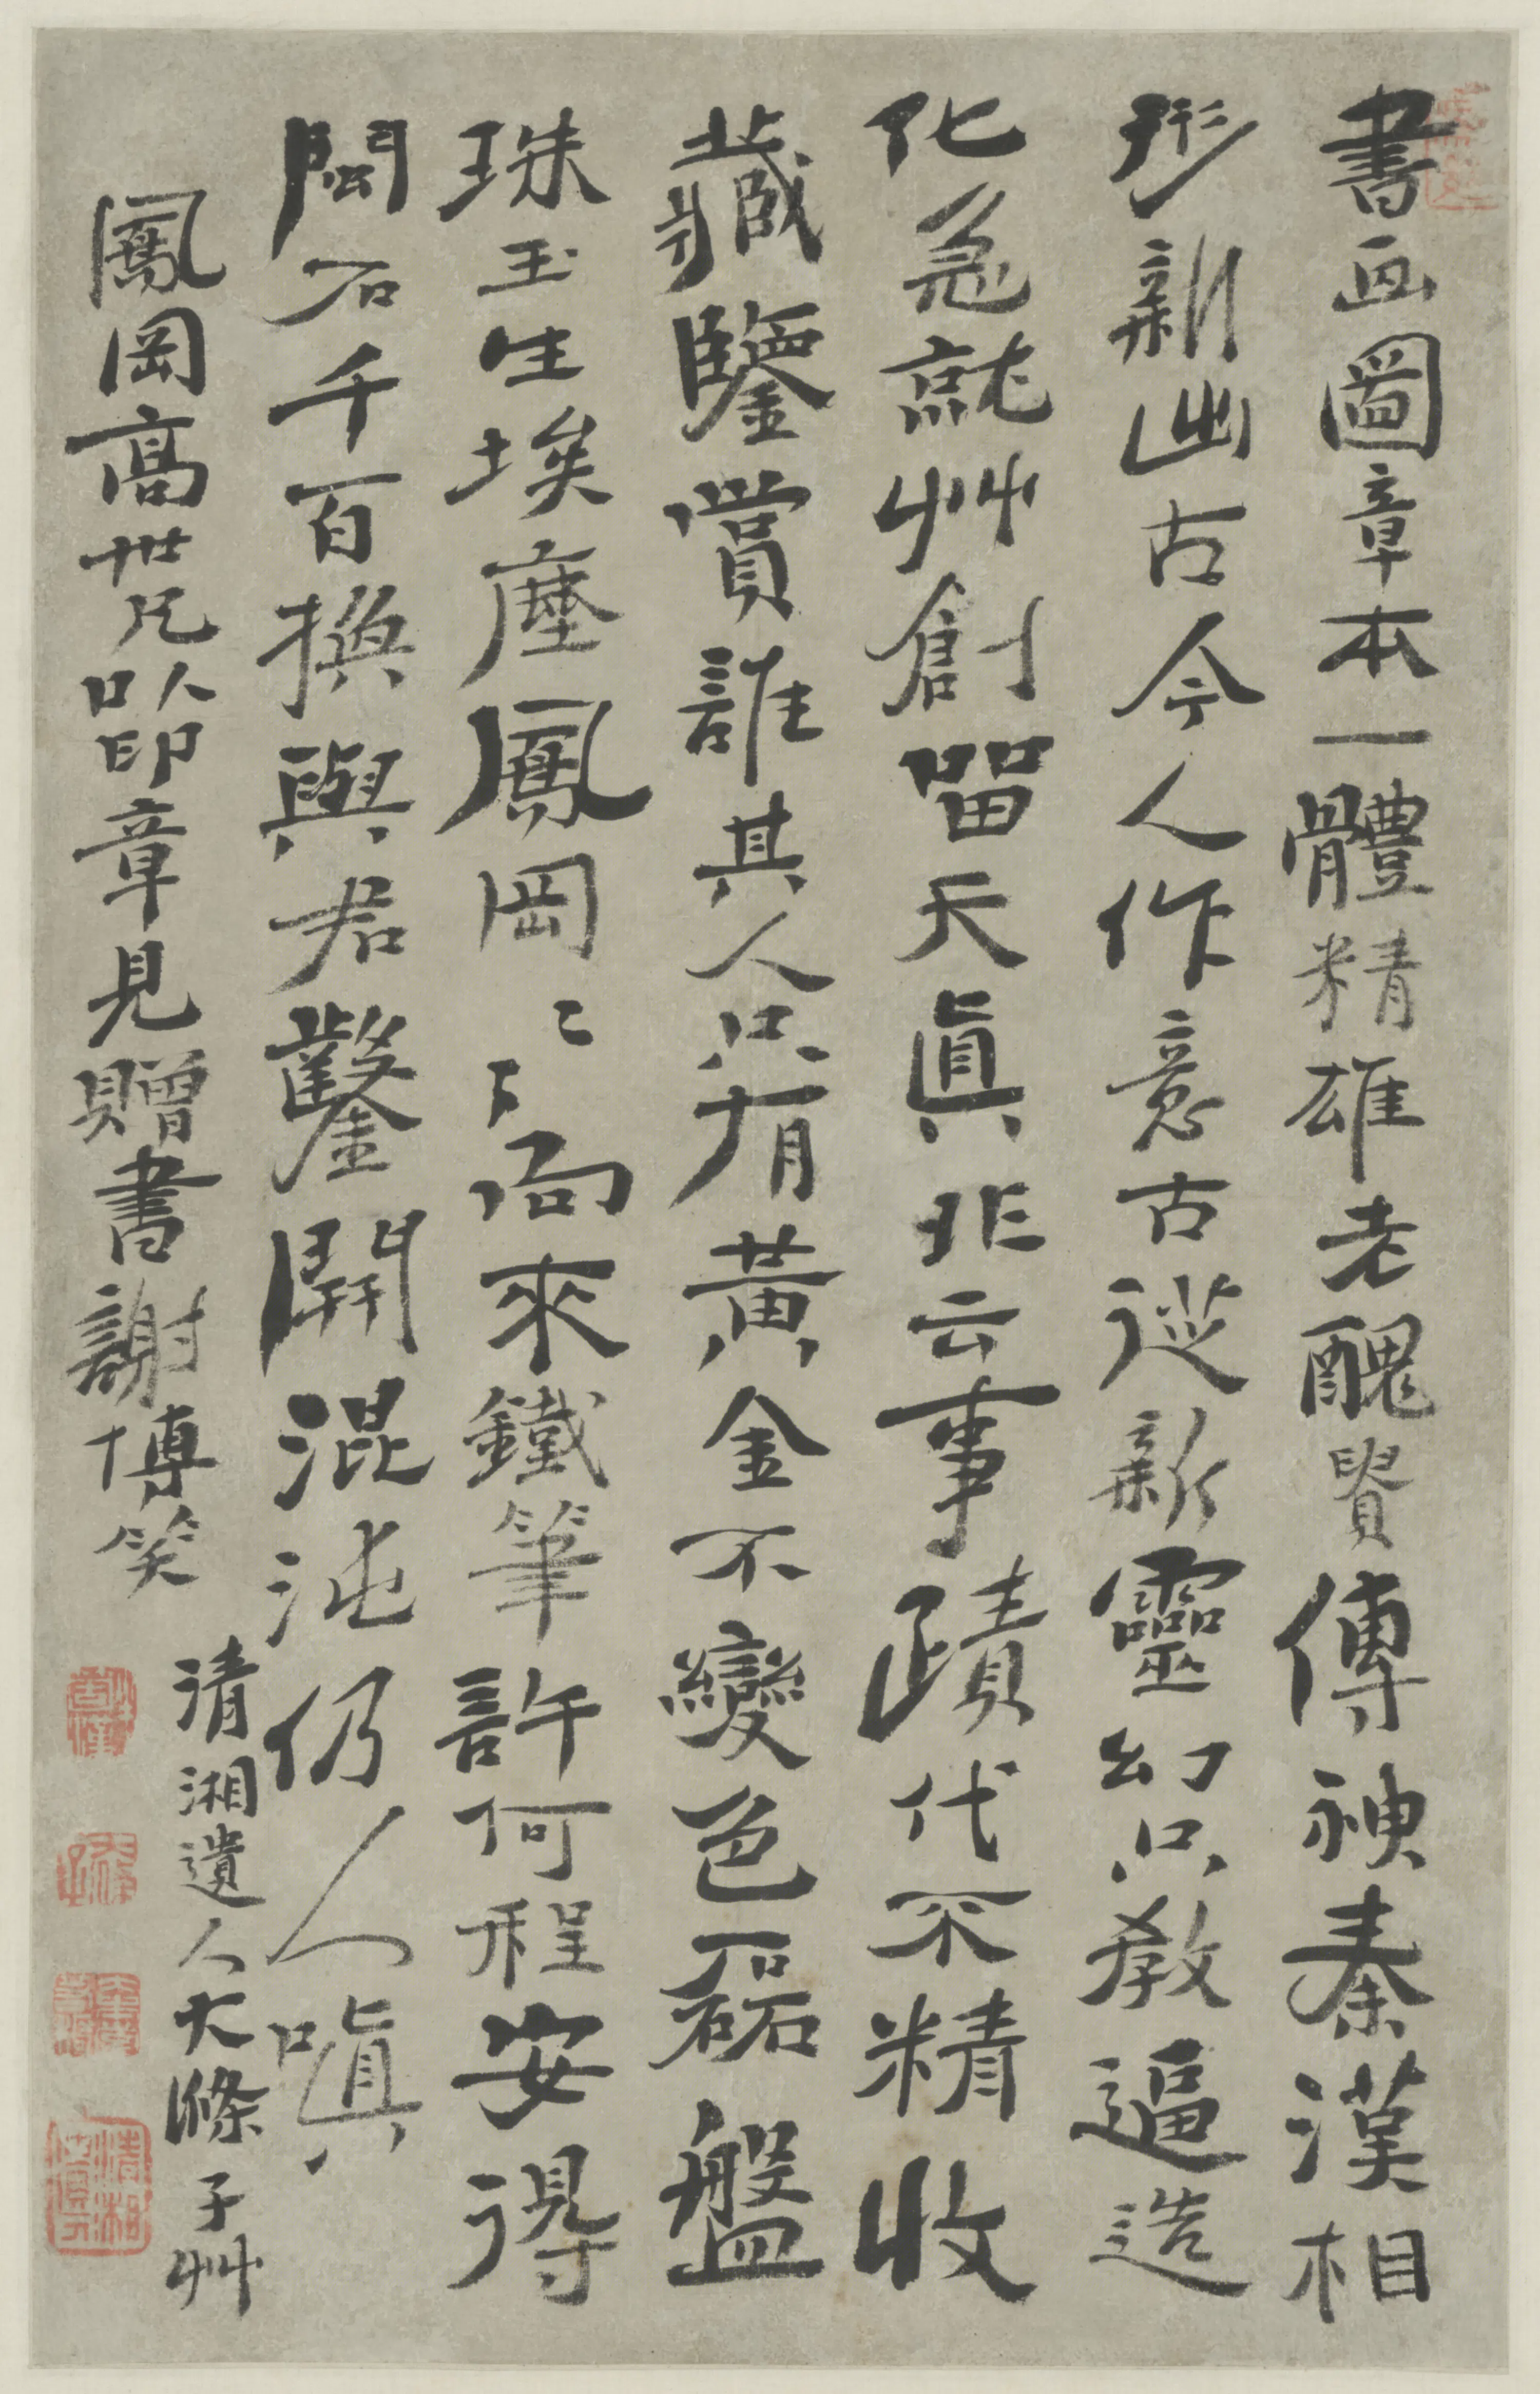 書畫圖章本一體精雄老醜貴傳神秦漢相
形新出古今人作意古從新靈幻只教逼造
化急就艸創留天真非云事蹟代不精收
藏鑒賞誰其人只有黃金不變色磊盤
珠玉生埃塵鳳岡〻〻向來鐵筆許何程安得
閩石千百換與君鑿開混沌仍人嗔
鳳岡高世兄以印章見贈書謝博笑
清湘遺人大滌子艸
清湘